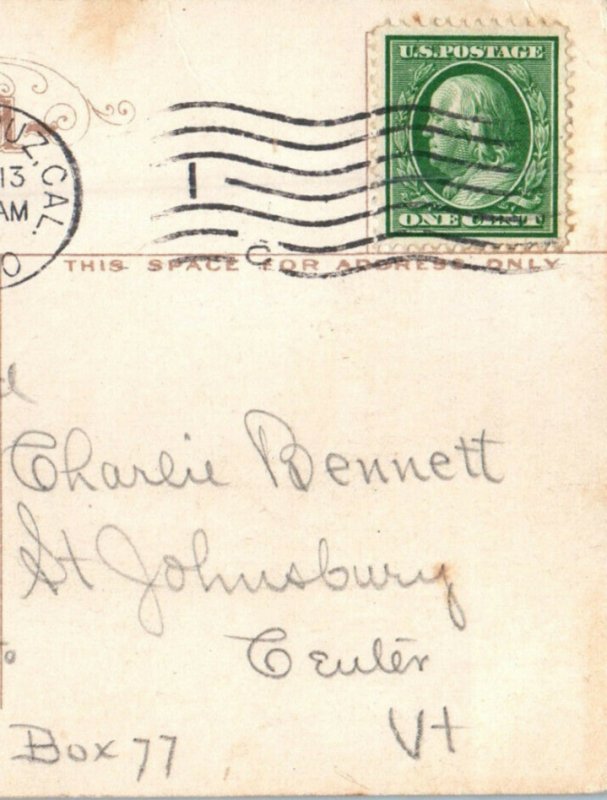 U.S. POSTAGE
ONE CENT
UZ, CAL.
13
AM
0
C
THIS SPACE FOR ADDRESS ONLY
Charlie Bennett
St Johnsbury
Center
Box 77 Vt